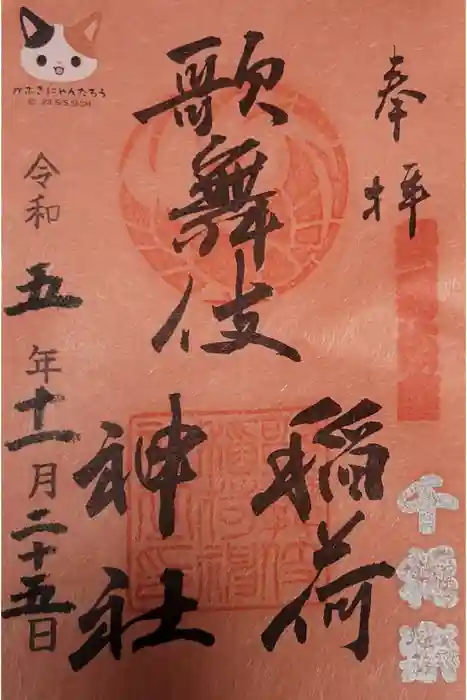 奉拝
歌舞伎
稲荷
神社
令和五年十一月二十五日
かぶきにゃんたろう
千穐楽